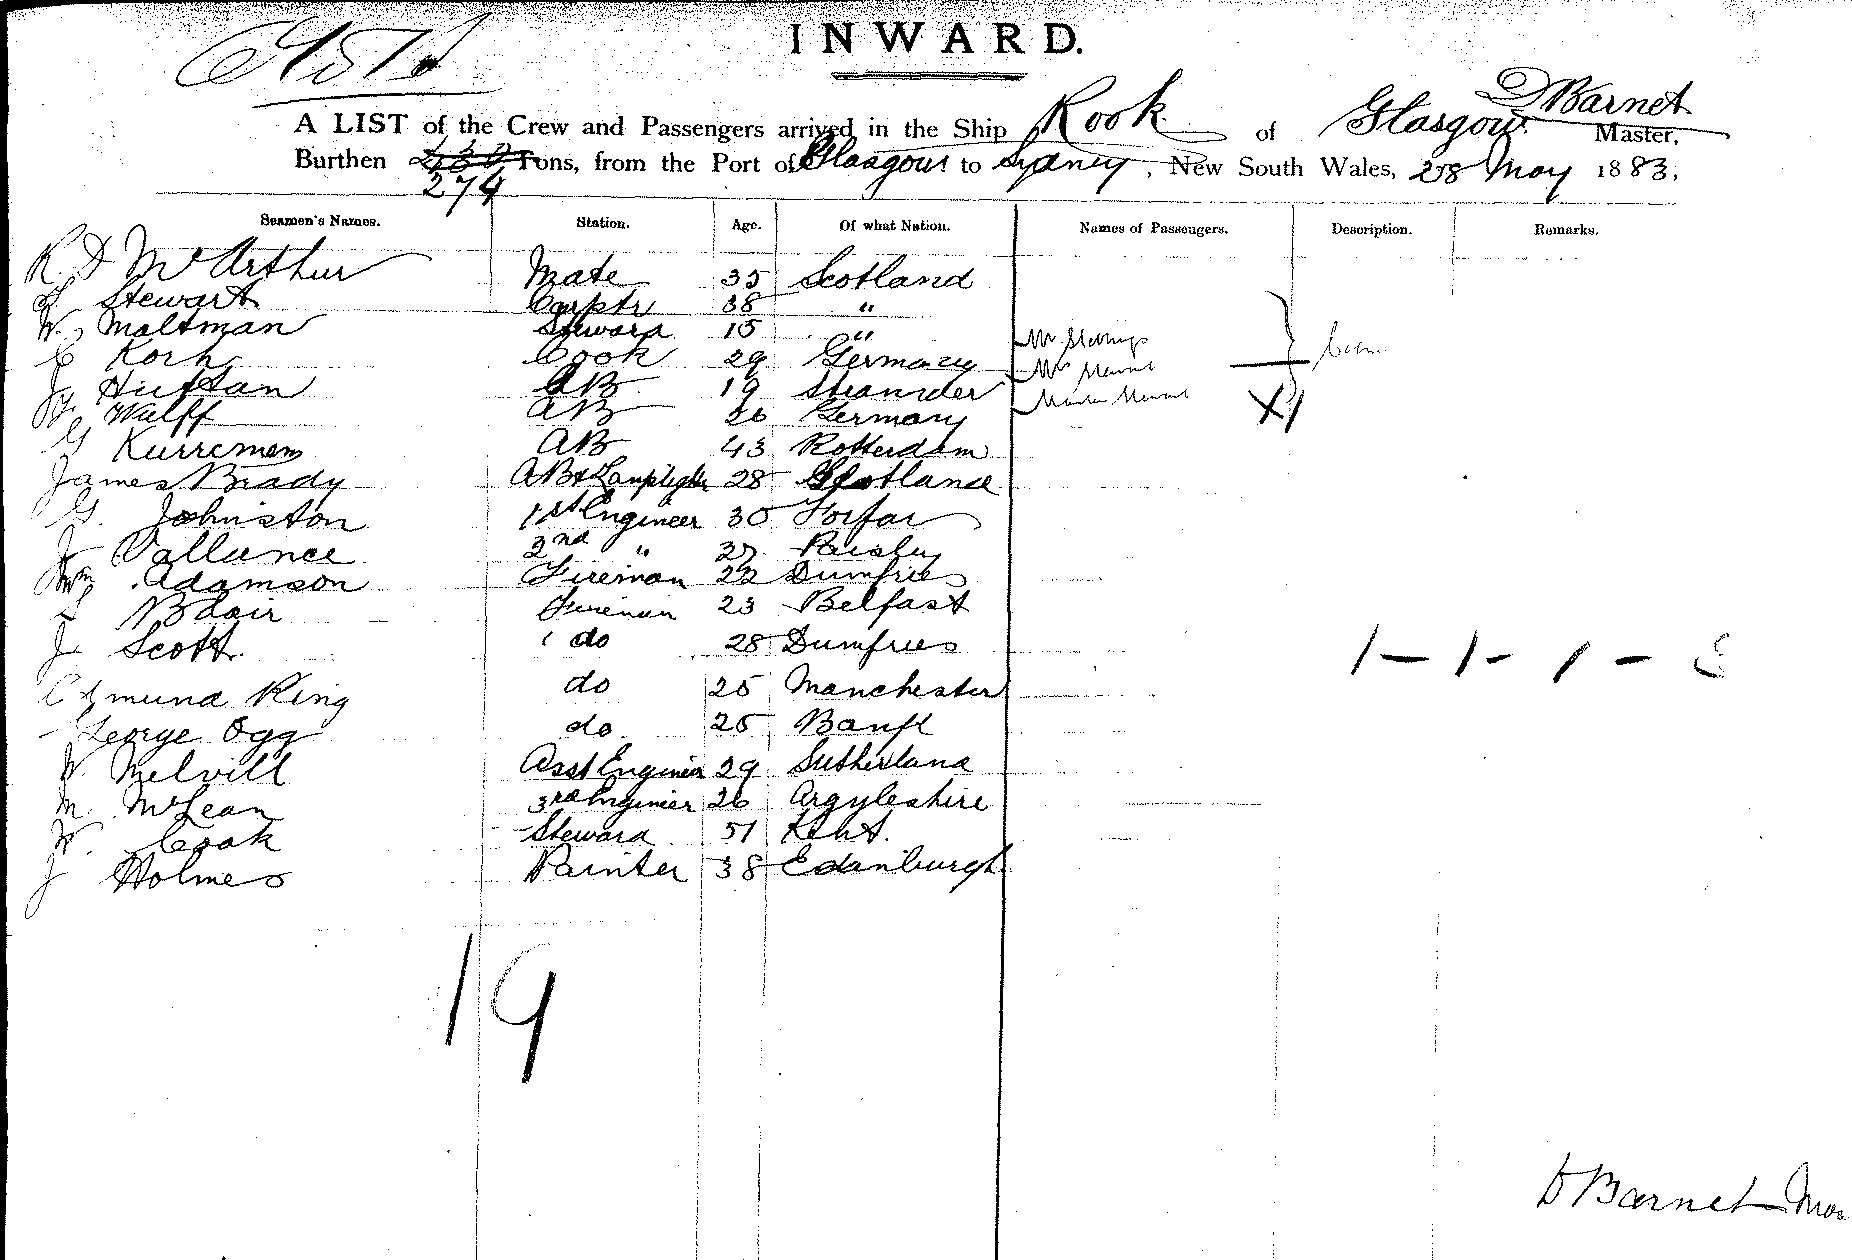 INWARD.
D Barnet
A LIST of the Crew and Passengers arrived in the Ship Rook of Glasgow Master,
Burthen Tons, from the Port of Glasgow to Sydney, New South Wales, 28 May 1883,
274
Seamen's Names. Station. Age. Of what Nation. Names of Passengers. Description. Remarks.
R. D McArthur Mate 35 Scotland
Stewart Carptr 38 "
W. Maltman Steward 15 "
C Korn Cook 29 Germany
Huffan AB 19
Wulff AB 26 Germany
G Kurremen AB 43 Rotterdam
James Brady AB & Lamplighter 28 Scotland
G. Johnston 1st Engineer 30 Forfar
J Vallance 2nd " 37 Paisley
Wm Adamson Fireman 22 Dumfries
Blair Fireman 23 Belfast
J Scott do 28 Dumfries
Edmund King do 25 Manchester
George Ogg do 25 Banff
W. Melvill Asst Engineer 29 Sutherland
M. McLean 3rd Engineer 26 Argyleshire
W. Cook Steward 51 Kent.
J Holmes Painter 38 Edinburgh
1 - 1 - 1 - 3
19
D Barnet Mas